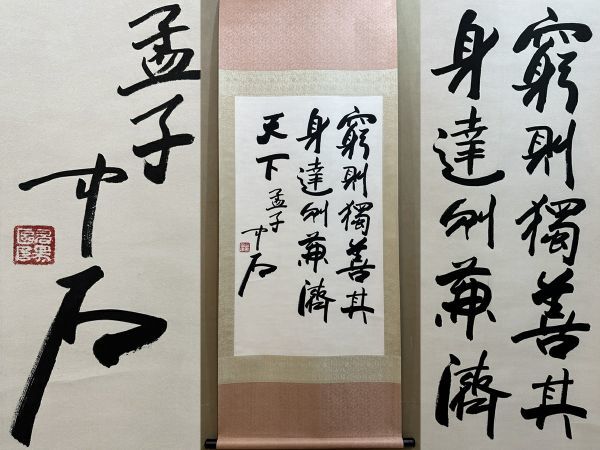 窮則獨善其
身達則兼濟
天下 孟子 中石
孟子
中石
窮則獨善其
身達則兼濟